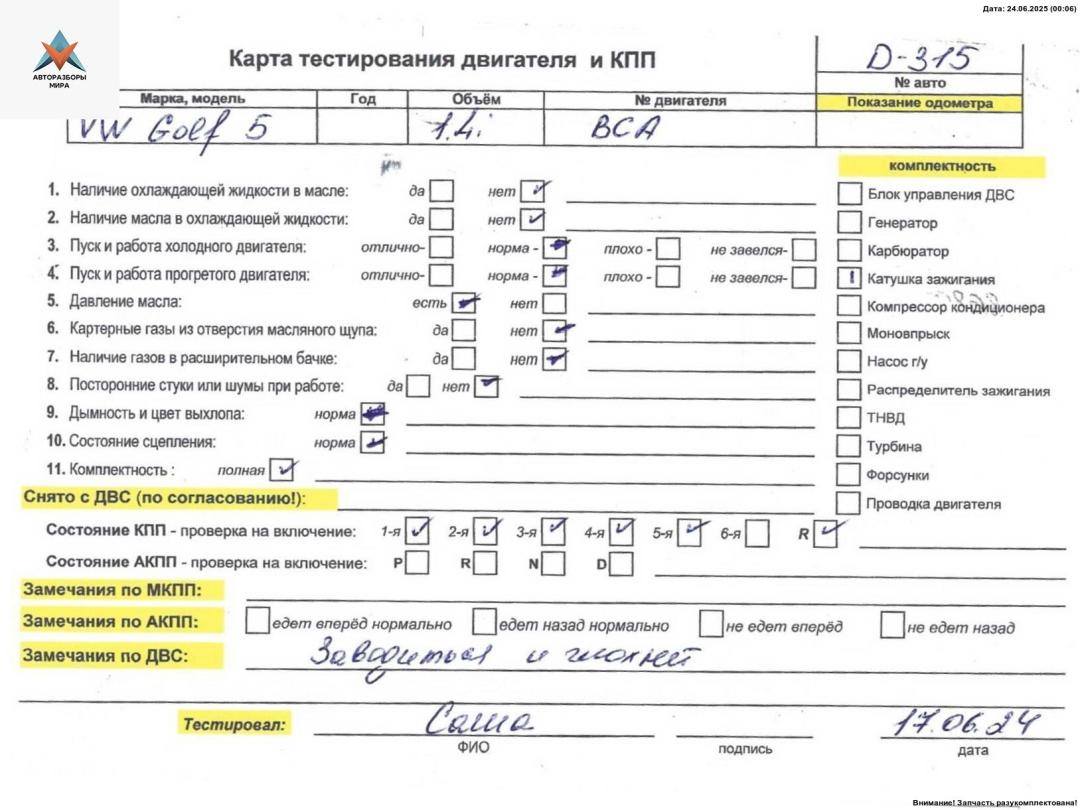 Дата: 24.06.2025 (00:06)
АВТОРАЗБОРЫ
МИРА
Карта тестирования двигателя и КПП
D-315
№ авто
Марка, модель Год Объём № двигателя Показание одометра
VW Golf 5 1.4i BCA
комплектность
1. Наличие охлаждающей жидкости в масле: да нет
Блок управления ДВС
2. Наличие масла в охлаждающей жидкости: да нет
Генератор
3. Пуск и работа холодного двигателя: отлично- норма - плохо - не завелся-
Карбюратор
4. Пуск и работа прогретого двигателя: отлично- норма - плохо - не завелся-
Катушка зажигания
5. Давление масла: есть нет
Компрессор кондиционера
6. Картерные газы из отверстия масляного щупа: да нет
Моновпрыск
7. Наличие газов в расширительном бачке: да нет
Насос г/у
8. Посторонние стуки или шумы при работе: да нет
Распределитель зажигания
9. Дымность и цвет выхлопа: норма
ТНВД
10. Состояние сцепления: норма
Турбина
11. Комплектность : полная
Форсунки
Снято с ДВС (по согласованию!):
Проводка двигателя
Состояние КПП - проверка на включение: 1-я 2-я 3-я 4-я 5-я 6-я R
Состояние АКПП - проверка на включение: P R N D
Замечания по МКПП:
Замечания по АКПП: едет вперёд нормально едет назад нормально не едет вперёд не едет назад
Замечания по ДВС: Заводиться и глохнет
Тестировал: Саша 17.06.24
ФИО подпись дата
Внимание! Запчасть разукомплектована!